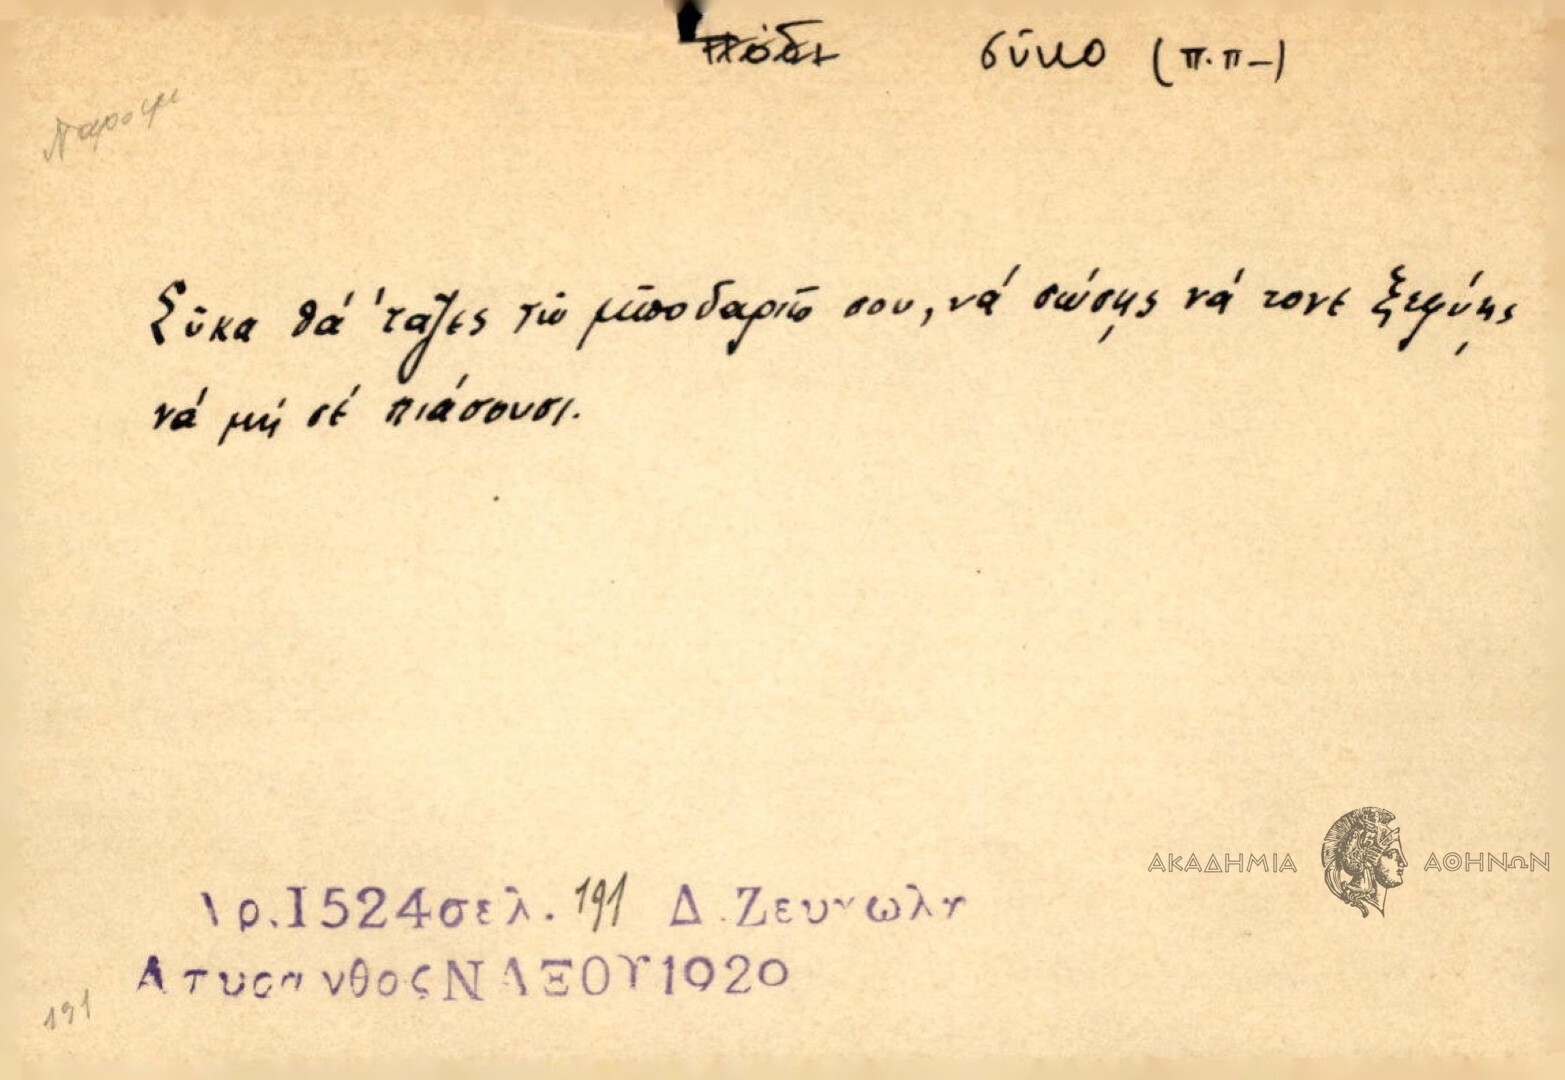 πόδι σῦκο (π.π-)
Παροιμ
Σῦκα θά 'ταζες τῶ μποδαριῶ σου, νά σώσῃς νά τονε ξεφύῃς
νά μή σέ πιάσουσι.
Ἀρ.1524 σελ. 191 Δ. Ζευγωλη
Απυρανθος ΝΑΞΟΥ 1920
191
ΑΚΑΔΗΜΙΑ ΑΘΗΝΩΝ